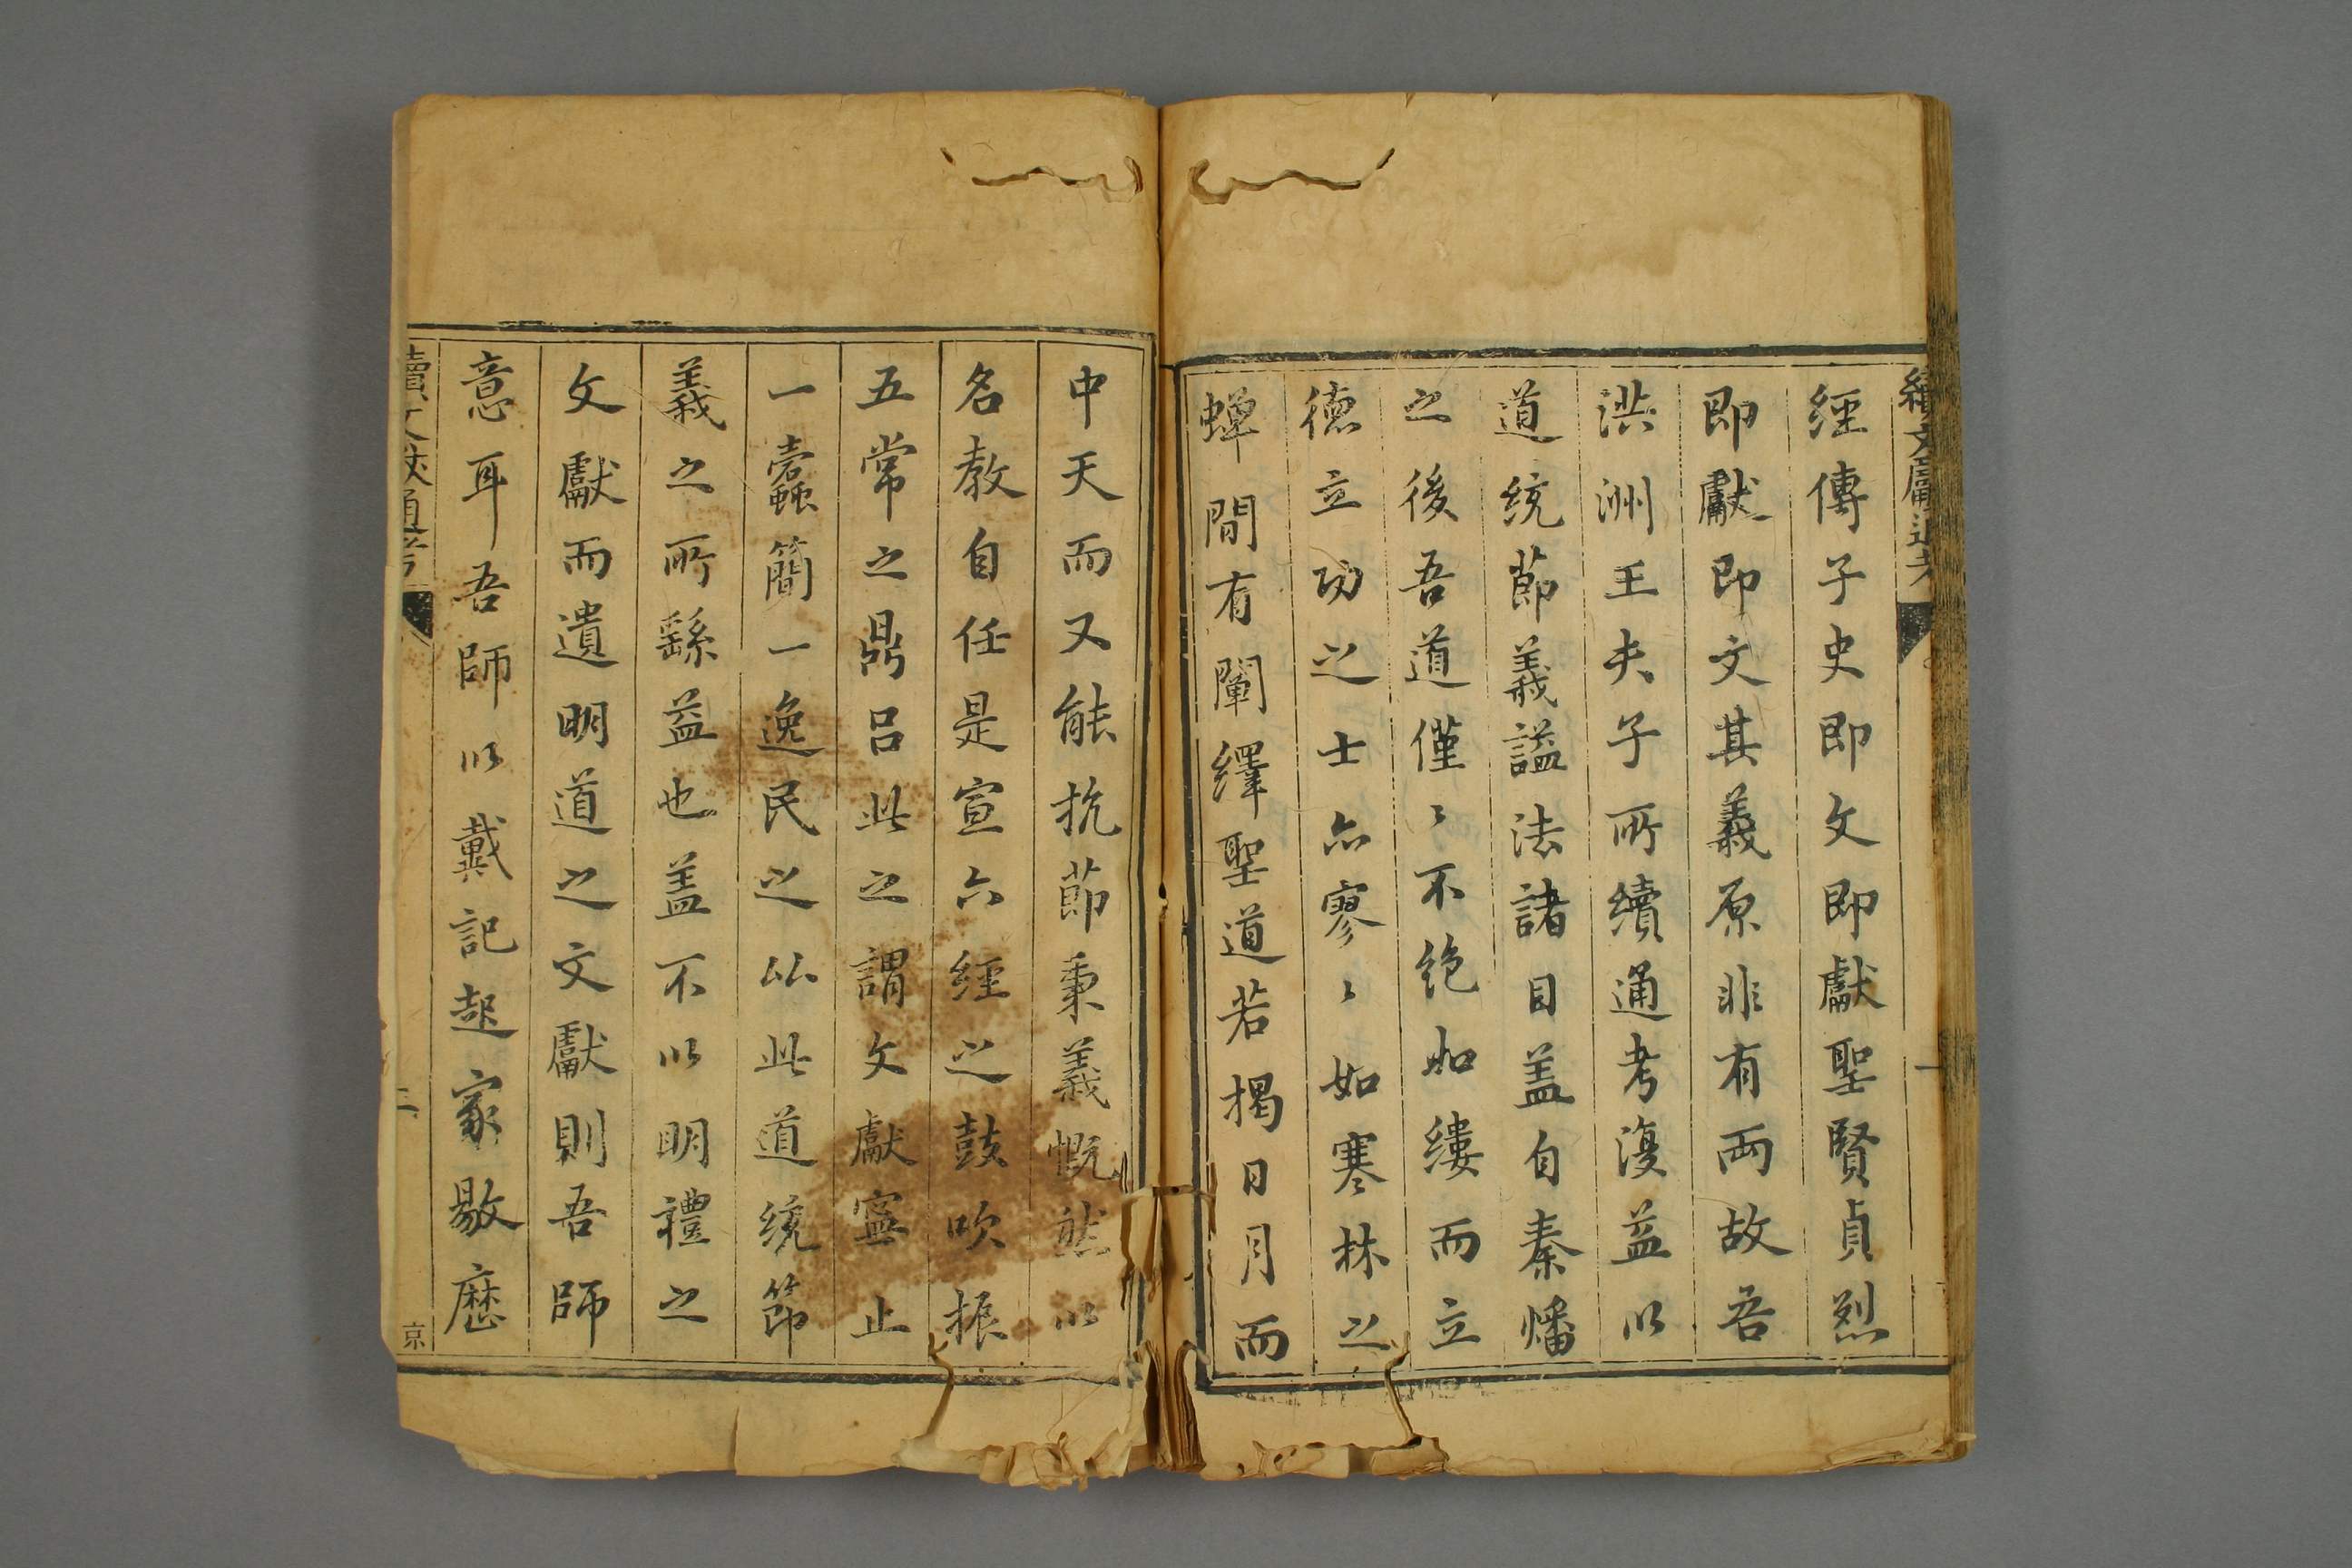 續文獻通考
經傳子史即文即獻聖賢貞烈
即獻即文其義原非有兩故吾
洪洲王夫子所續通考復益以
道統節義謚法諸目盖自秦燔
之後吾道僅〻不絶如縷而立
德立功之士亦寥〻如寒林之
蟬間有闡繹聖道若揭日月而
中天而又能抗節秉義慨然以
名教自任是宣六經之鼓吹振
五常之鼎呂此之謂文獻寧止
一蠹簡一逸民之以此道統節
義之所繇益也盖不以明禮之
文獻而遺明道之文獻則吾師
意耳吾師以戴記起家敭歷
續文獻通考
三
京